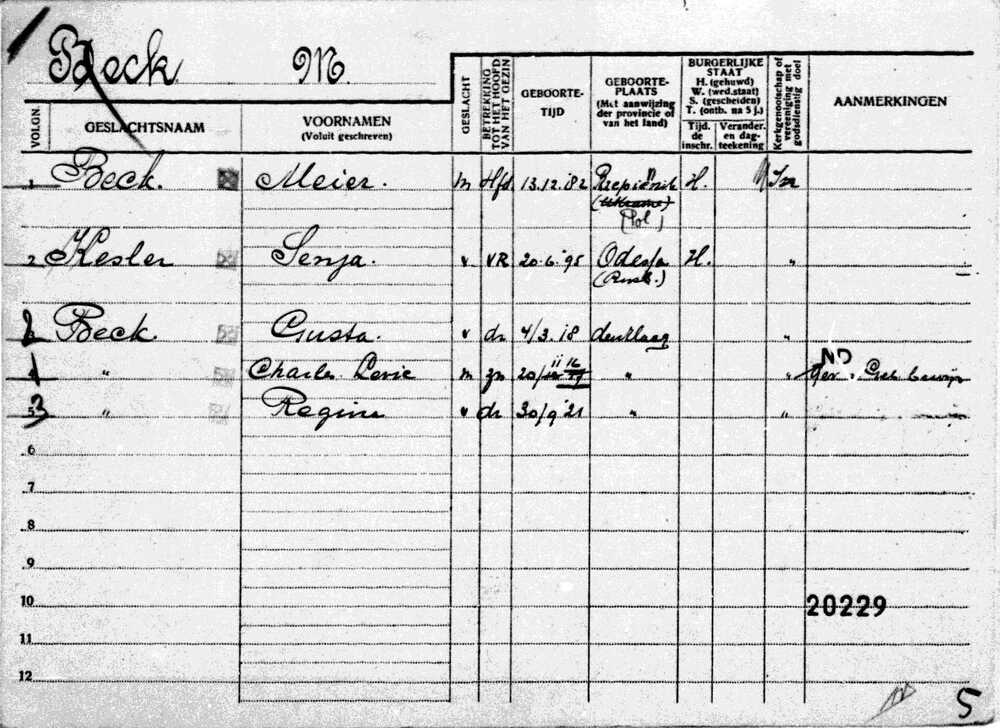 Beck M
VOLGN. GESLACHTSNAAM VOORNAMEN (Voluit geschreven) GESLACHT BETREKKING TOT HET HOOFD VAN HET GEZIN GEBOORTE-TIJD GEBOORTE-PLAATS (Met aanwijzing der provincie of van het land) BURGERLIJKE STAAT H. (gehuwd) W. (wed.staat) S. (gescheiden) T. (ontb. na 5 j.) Tijd. de inschr. Verander. en dag-teekening Kerkgenootschap of vereeniging met godsdienstig doel AANMERKINGEN
1 Beck. Meier. m Hfd. 13.12.'82 H.
(Ukraine)
(Pol.)
2 Kesler Senja. v. VR 20.6.'95 Odessa H. "
(Rusl.)
Beck. Gusta. v dr 4/3.'18 den Haag "
4 " Charles Levie m zn 20/ " "
ND
5 3 " Regina v dr 30/9 '21 " "
6
7
8
9
10 20229
11
12
5